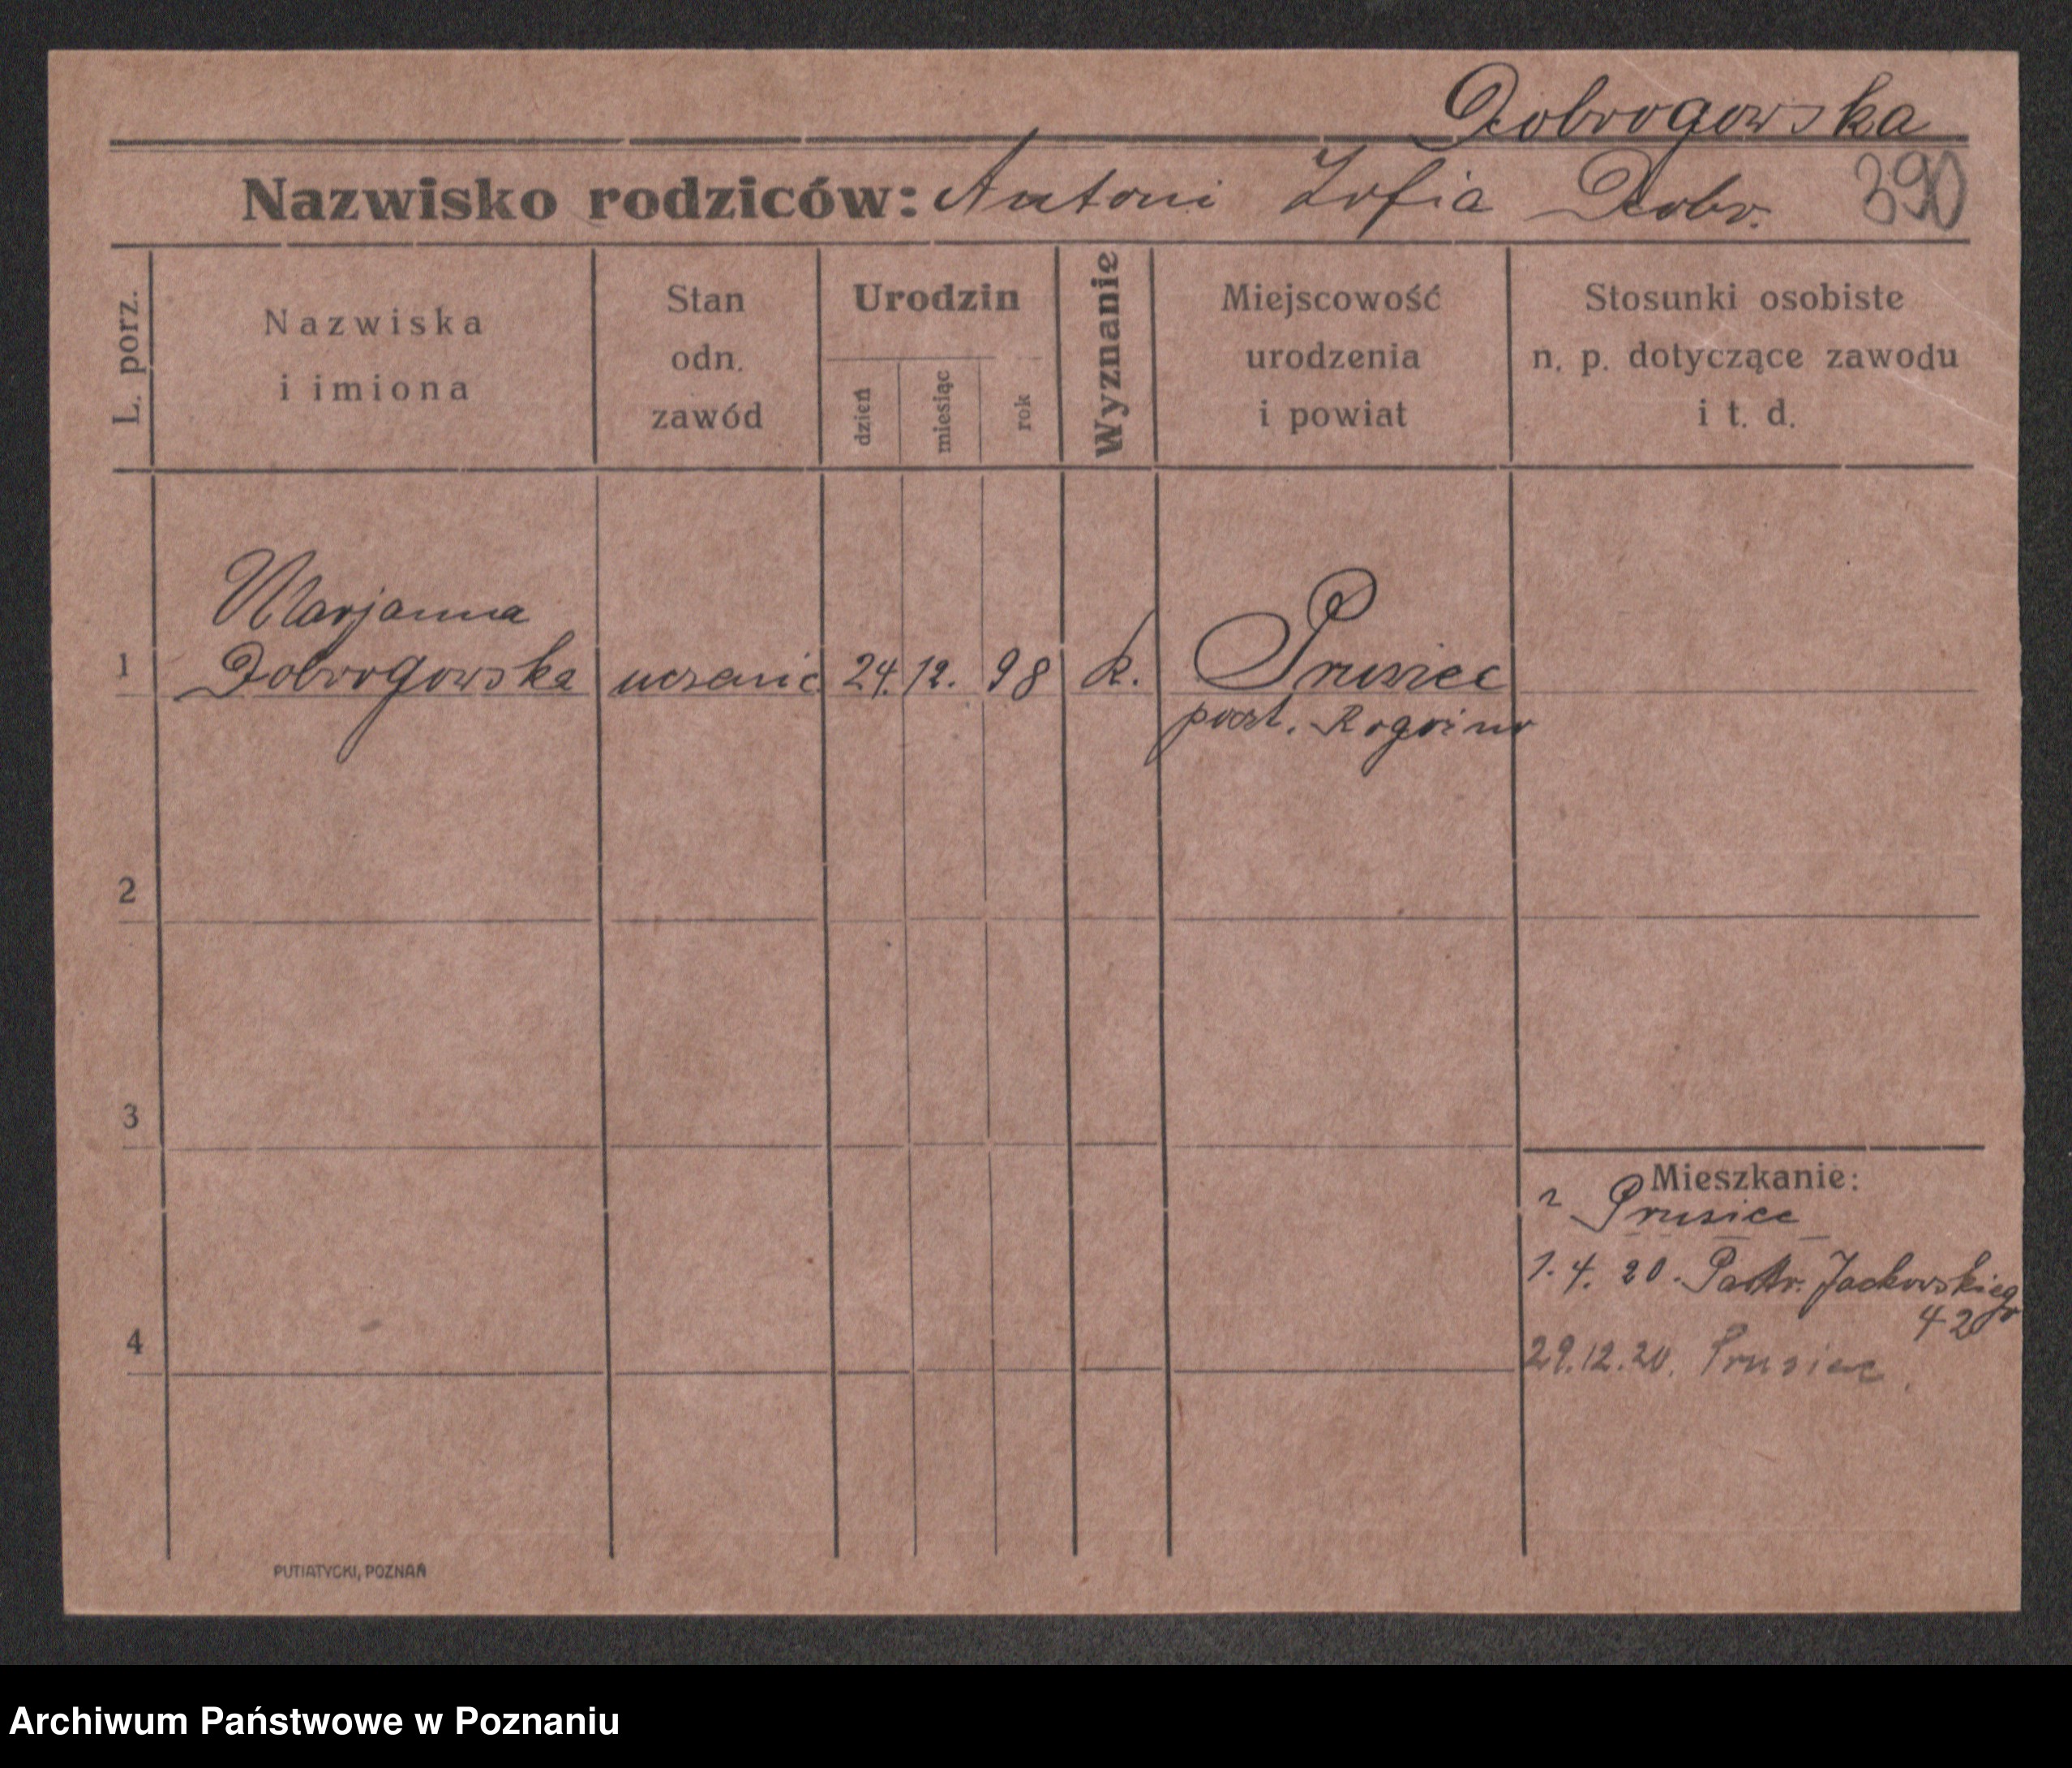 Dobrogowska
Nazwisko rodziców: Antoni Zofia Dobr. 390
L. porz.
Nazwiska
i imiona
Stan
odn.
zawód
Urodzin
dzień
miesiąc
rok
Wyznanie
Miejscowość
urodzenia
i powiat
Stosunki osobiste
n. p. dotyczące zawodu
i t. d.
Marjanna
1 Dobrogowska 24. 12. 98 k. Prusiec
Rogoźno
2
3
Mieszkanie:
z Prusiec
1. 4. 20. Patr. Jackowskiego
42
4
29.12.20. Prusiec.
PUTIATYCKI, POZNAŃ
Archiwum Państwowe w Poznaniu